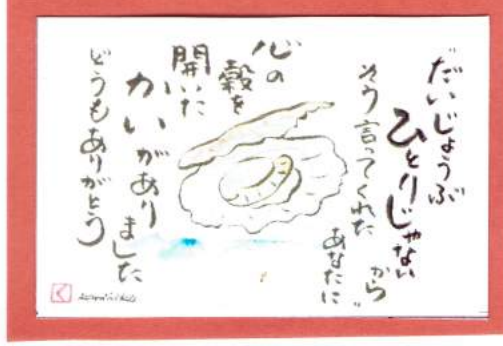 だいじょうぶ
ひとりじゃない
から〟
そう言ってくれた
あなたに
心の
殻を
開いた
かいがあり
ました
どうもありがとう
く